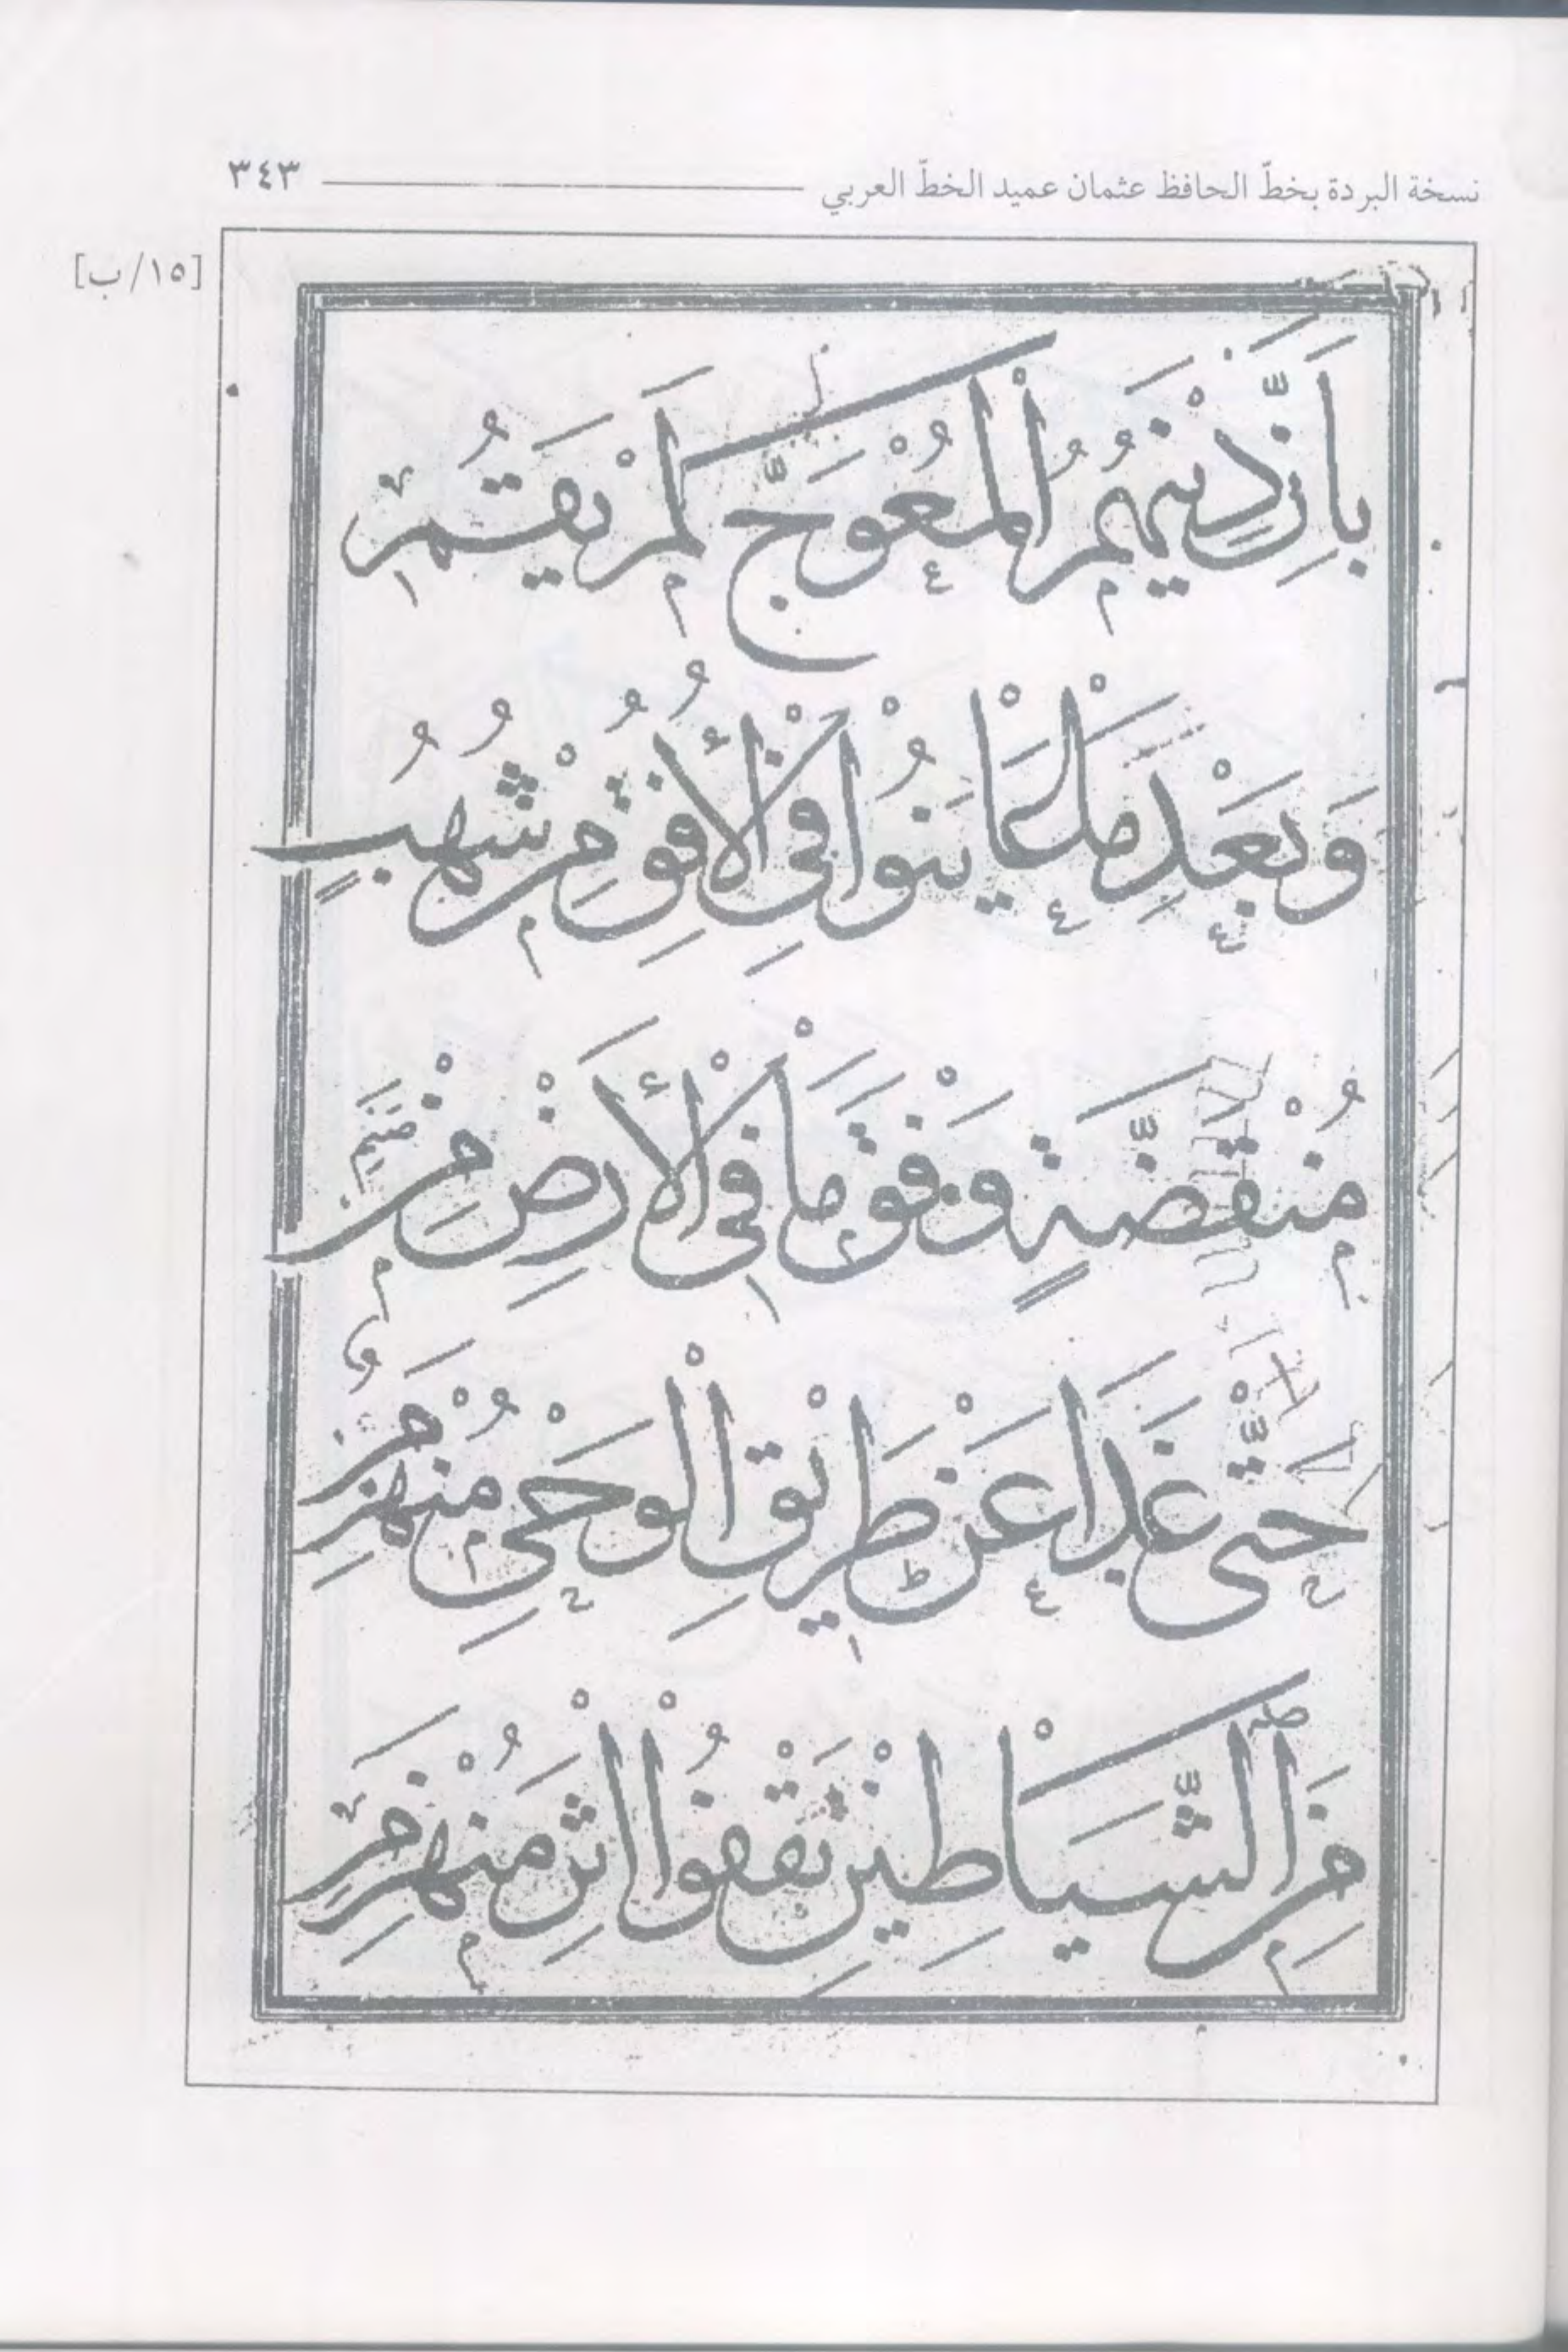 نسخة البردة بخطّ الحافظ عثمان عميد الخطّ العربي ٣٤٣
[١٥/ب]
بِاَنَّ دِيْنَهُمُ الْمُعْوَجَّ لَمْ يَقُمْ
وَبَعْدَ مَا عَايَنُوا فِي الْأُفُقِ مِنْ شُهُبٍ
مُنْقَضَّةٍ وَفْقَ مَا فِي الْأَرْضِ مِنْ صَنَمِ
حَتَّى غَدَا عَنْ طَرِيْقِ الْوَحْيِ مُنْهَزِمٌ
مِنَ الشَّيَاطِيْنِ يَقْفُوا اِثْرَ مُنْهَزِمِ